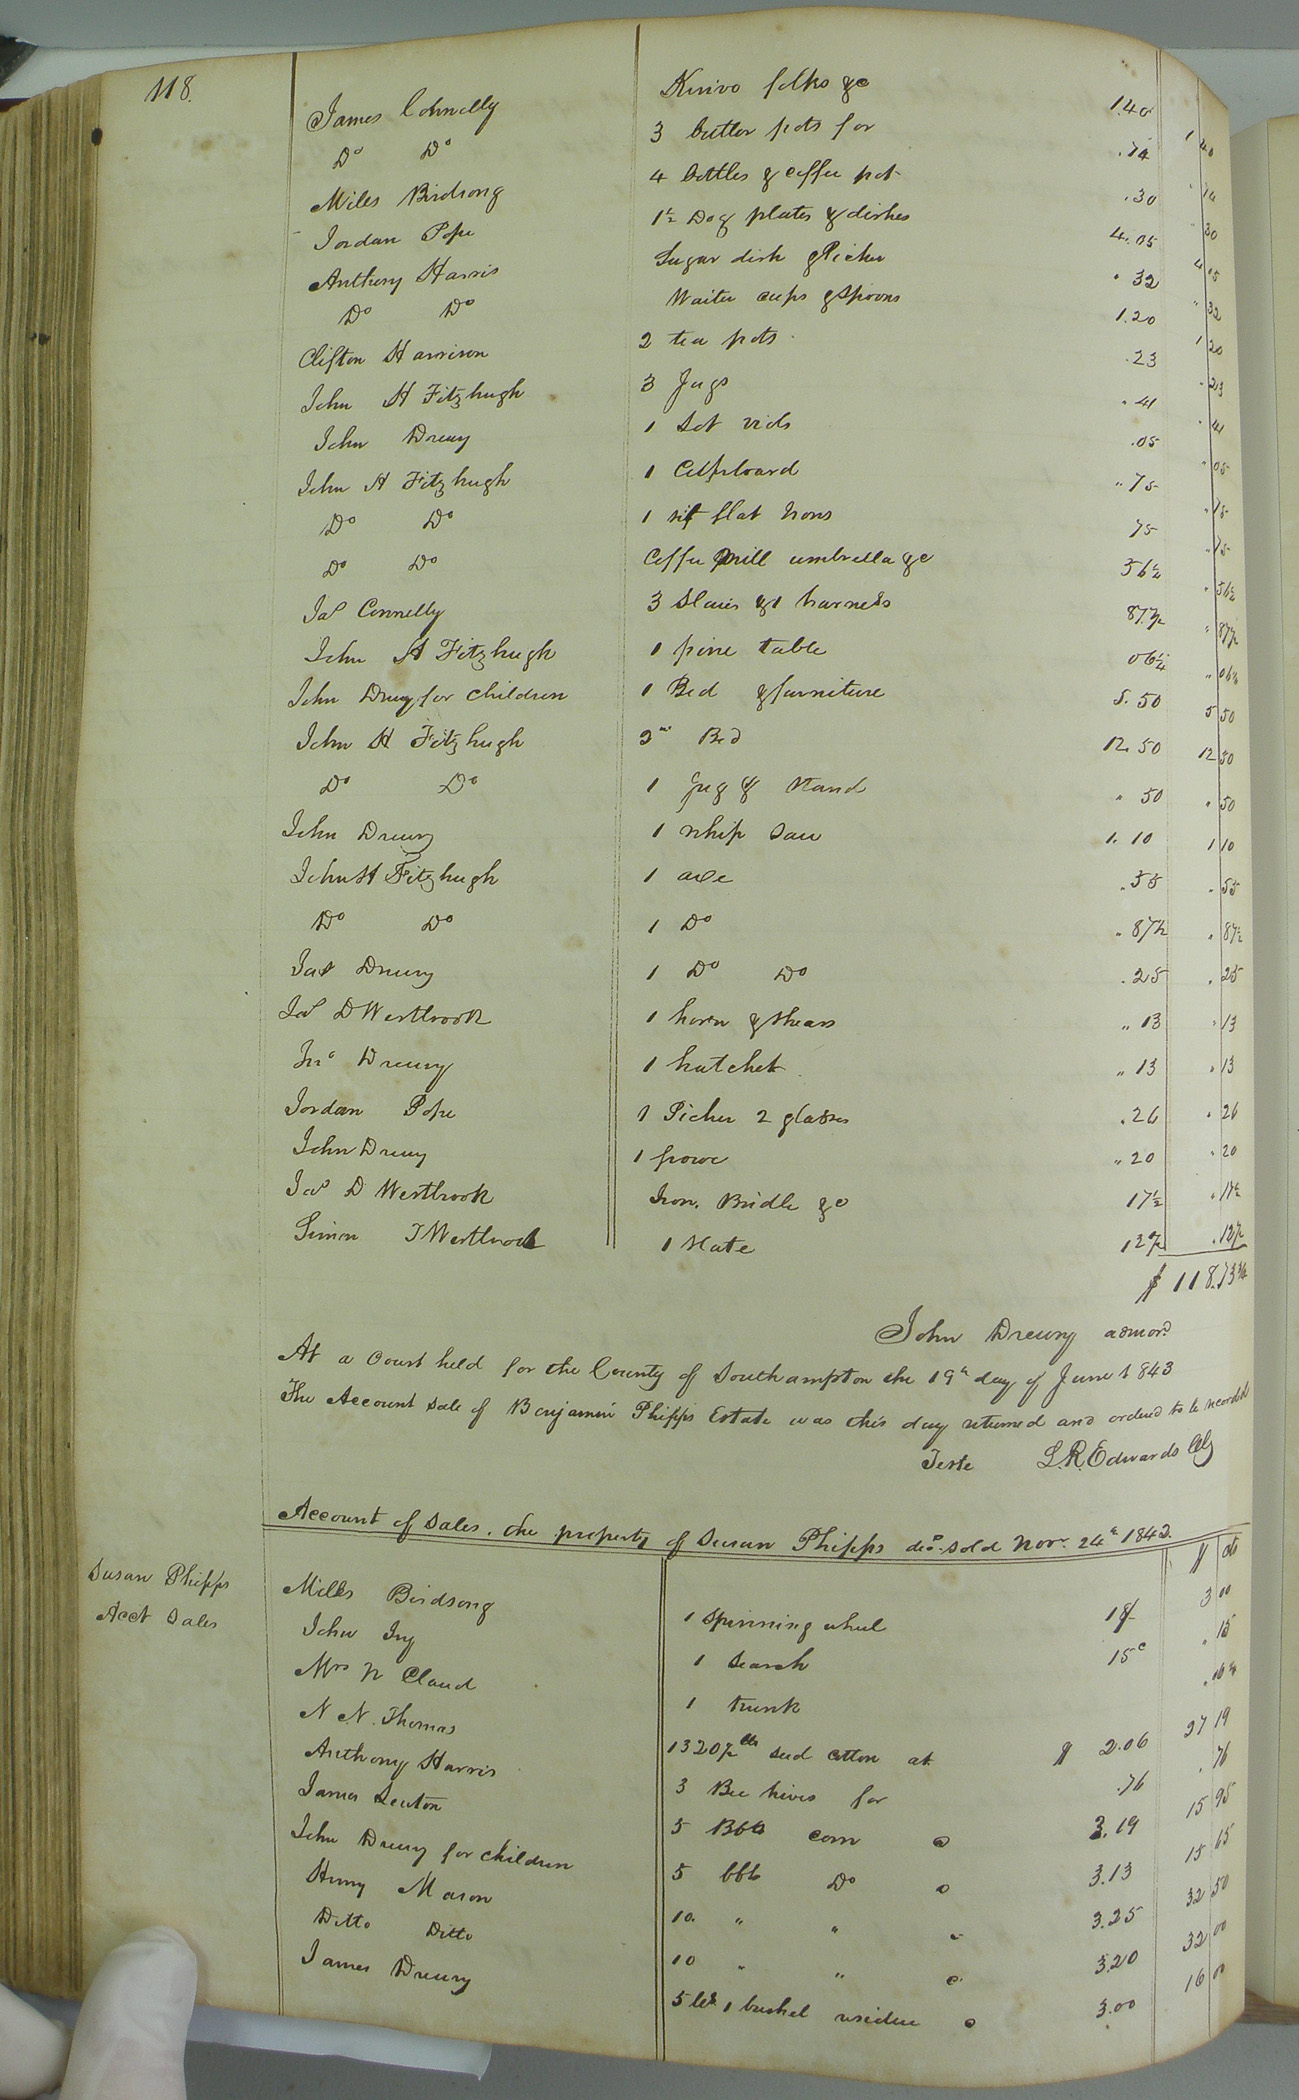 118.
James Connelly Knivs folks &c 1.40 1 40
Do Do 3 butter pots for .14 " 14
Miles Birdsong 4 bottles & coffee pot .30 " 30
Jordan Pope 1½ Dog plates & dishes 4.05 4 05
Anthony Harris Sugar dish & Picher " 32 " 32
Do Do Waiter cups & Spoons 1.20 1 20
Clifton Harrison 2 tea pots .23 " 23
John H Fitzhugh 3 Jugs " 41 " 41
John Drewry 1 Set .05 " 05
John H Fitzhugh 1 Cupboard " 75 " 75
Do Do 1 set flat Irons 75 " 75
Do Do Coffee Mill umbrella &c 56¼ " 56¼
Jas Connelly 3 Slaies & 1 harness 87½ " 87½
John H Fitzhugh 1 pine table 06¼ " 06¼
John Drewry for Children 1 Bed & furniture 5.50 5 50
John H Fitzhugh 2nd Bed 12.50 12 50
Do Do 1 Jug & Stand " 50 " 50
John Drewry 1 whip saw 1.10 1 10
John H Fitzhugh 1 axe .55 " 55
Do Do 1 Do " 87½ " 87½
Jas Drewry 1 Do Do .25 " 25
Jas D Westbrook 1 horn & Shears " 13 " 13
Jno Drewry 1 hatchet " 13 " 13
Jordan Pope 1 Picher 2 glasses .26 " 26
John Drewry 1 " 20 " 20
Jas D Westbrook Iron, Bridle &c 17½ " 17½
Simon T Westbrook 1 Slate 12½ .12½
$ 118.73¾
John Drewry admor
At a Court held for the County of Southampton the 19th day of June 1843
The Account Sale of Benjamin Phipps Estate was this day returned and ordered to be recorded
Teste L.R. Edwards Clk
Account of Sales, the property of Susan Phipps decd. sold Novr. 24th 1842.
Susan Phipps
Acct Sales
$ cts
Miles Birdsong 1 Spinning wheel 18/ 3 00
John Ivy 1 Search 15c " 15
Mrs N Claud 1 trunk .06¼
N. N. Thomas 1320½ lbs seed cotton at $ 2.06 27 19
Anthony Harris 3 Bee hives for .76 .76
James Senton 5 Bbls corn @ 3.19 15 95
John Drewry for children 5 bbls Do @ 3.13 15 65
Henry Mason 10. " " " 3.25 32 50
Ditto Ditto 10 " " @ 3.20 32 00
James Drewry 5 bls 1 bushel residue @ 3.00 16 00